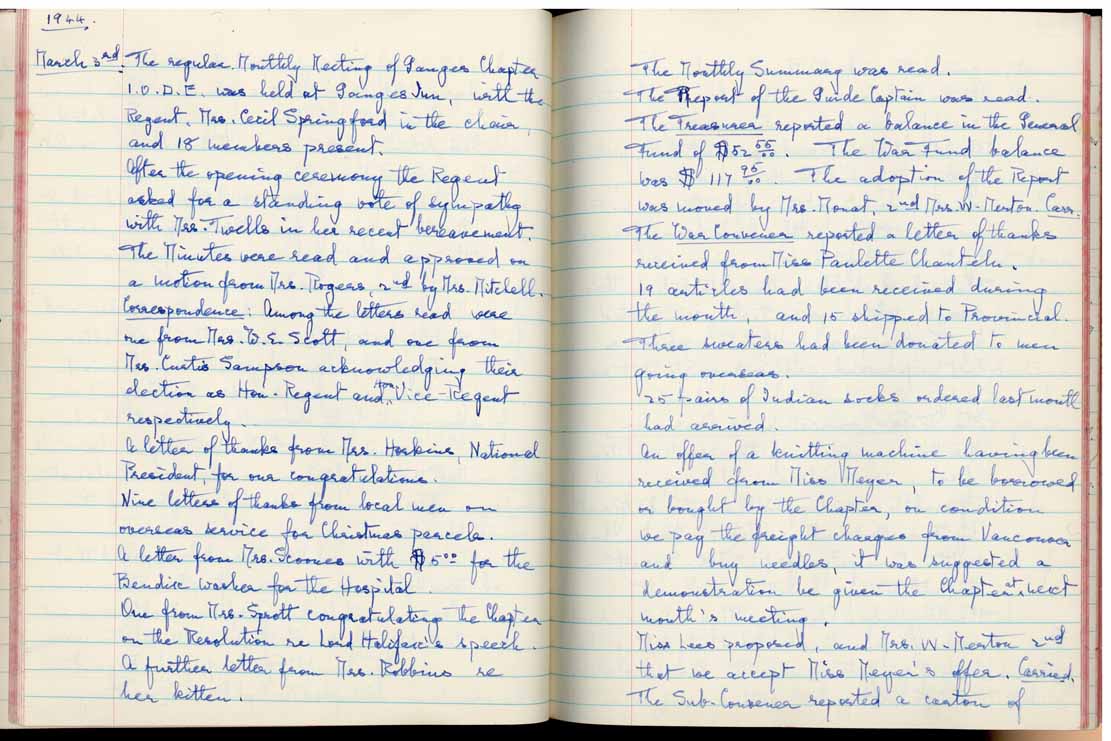 1944.
March 3rd. The regular Monthly Meeting of Ganges Chapter
I.O.D.E. was held at Ganges Inn, with the
Regent, Mrs. Cecil Springford in the chair,
and 18 members present.
After the opening ceremony the Regent
asked for a standing vote of sympathy
with Mrs. Twells in her recent bereavement.
The Minutes were read and approved on
a motion from Mrs. Rogers, 2nd by Mrs. Mitchell.
Correspondence: Among the letters read were
one from Mrs. W.E. Scott, and one from
Mrs. Curtis Sampson acknowledging their
election as Hon. Regent and Hon. Vice-Regent
respectively.
A letter of thanks from Mrs. Horkins, National
President, for our congratulations.
Nine letters of thanks from local men on
overseas service for Christmas parcels.
A letter from Mrs. Scoones with $5.00 for the
Bendix washer for the Hospital.
One from Mrs. Sprott congratulating the Chapter
on the Resolution re Lord Halifax's speech.
A further letter from Mrs. Robbins re
her kitten.
The Monthly Summary was read.
The Report of the Guide Captain was read.
The Treasurer reported a balance in the General
Fund of $52 . The War Fund balance
was $ 117 95/00. The adoption of the Report
was moved by Mrs. Mouat, 2nd Mrs. W. Norton. Carr.
The War Convener reported a letter of thanks
received from Miss Paulette Chanteln.
19 articles had been received during
the month, and 15 shipped to Provincial.
Three sweaters had been donated to men
going overseas.
25 pairs of Indian socks ordered last month
had arrived.
An offer of a knitting machine having been
received from Miss Meyer, to be borrowed
or bought by the Chapter, on condition
we pay the freight charges from Vancouver
and buy needles, it was suggested a
demonstration be given the Chapter at next
month's meeting.
Miss Lees proposed, and Mrs. W. Norton 2nd
that we accept Miss Meyer's offer. Carried.
The Sub-Convener reported a carton of